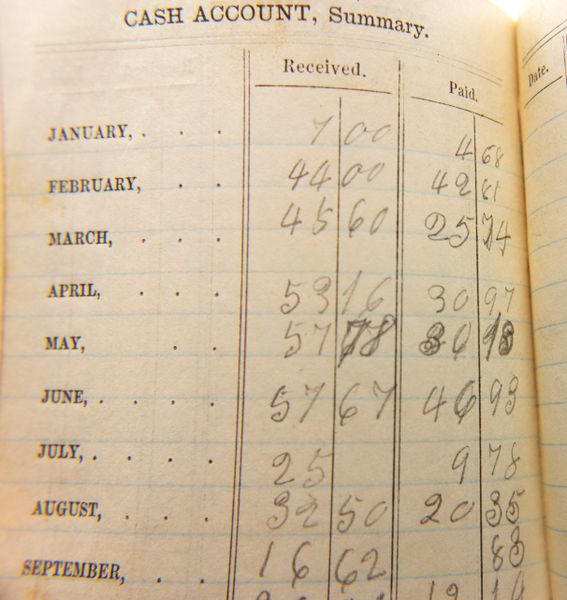 CASH ACCOUNT, Summary.
Received. Paid. Date.
JANUARY, . . . 7 00 4 68
FEBRUARY, . . 44 00 42 61
MARCH, . . . 45 60 25 74
APRIL, . . . 53 16 30 97
MAY, . . 57 78
JUNE, . . . . 57 67 46 93
JULY, . . . . 25 9 78
AUGUST, . . . 32 50 20 35
SEPTEMBER, . . 16 62 83